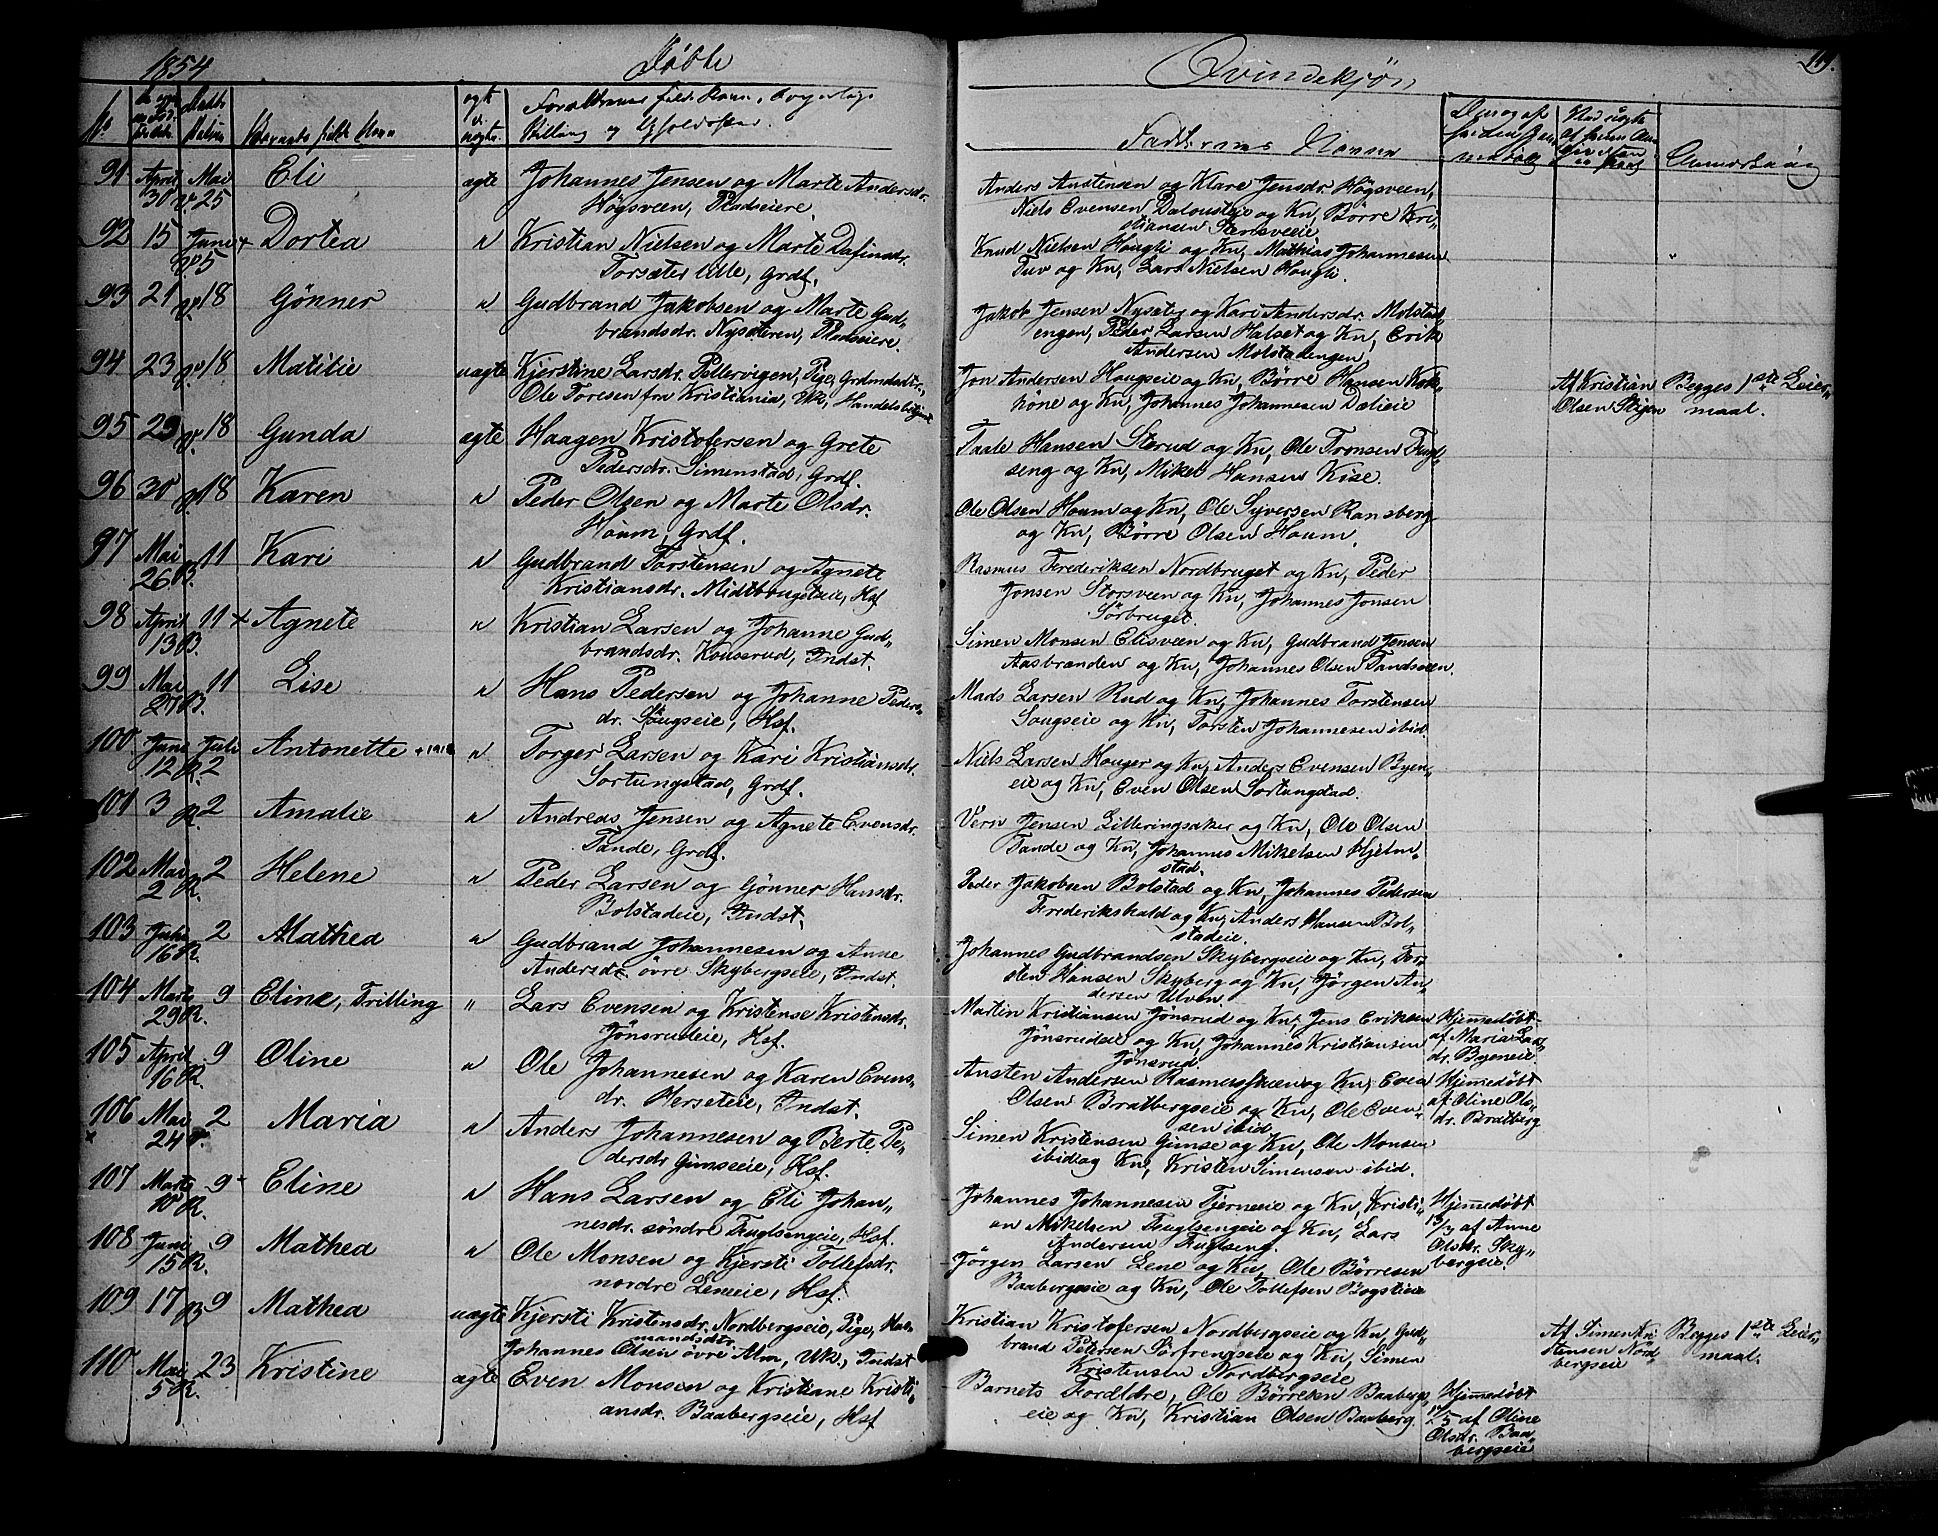 1854 Døbte Qvindekjøn
No Barnets fulde Navn ægte Forældrenes fulde Navn, Borgerlige Stilling og Opholdssted. Faddernes Navne Anmærkning
91 April 30 Mai 25 Eli ægte Johannes Jensen og Marte Andersdr.
Høgsveen, Pladseiere.
Anders Austensen og Klare Jensdr. Høgsveen,
Niels Evensen og Kn, Børre Kri-
stiansen
92 15 Juni 5 Dortea Kristian Nielsen og Marte Dafinsdr.
Torsæter lille, Grdf.
Knud Nielsen Haugli og Kn, Mathias Johannesen
Tuv og Kn, Lars Nielsen Haugli.
93 21 18 Gønner Gudbrand Jakobsen og Marte Gud-
brandsdr. Nysæteren, Pladseiere.
Jakob Jensen Nysæter og Kari Andersdr. Molstad-
engen, Peder Larsen Halset og Kn, Erik
Andersen Molstadengen
94 23 18 Matilie uægte Kjerstine Larsdr. Pellervigen, Pige,
Ole Toresen fra Kristiania, Uk,
Jon Andersen Haugseie og Kn, Børre Hansen
og Kn, Johannes Johannesen Dælieie
Af Kristian
Olsen Stigen
Begges 1ste Leier-
maal.
95 29 18 Gunda ægte Haagen Kristofersen og Grete
Pedersdr. Simenstad, Grdf.
Taale Hansen Sterud og Kn, Ole Tronsen Fugl-
seng og Kn, Mikel Hansen Kise.
96 30 18 Karen Peder Olsen og Marte Olsdr.
Houm, Grdf.
Ole Olsen Houm og Kn, Ole Syversen Ransberg
og Kn, Børre Olsen Houm.
97 Mai 26 11 Kari Gudbrand Torstensen og Agnete
Kristiansdr. Midtbrugeteie, Hsf
Rasmus Frederiksen Nordbruget og Kn, Peder
Jonsen Storsveen og Kn, Johannes Jonsen
Sørbruget.
98 April 13 11 Agnete Kristian Larsen og Johanne Gud-
brandsdr. Konserud, Indst.
Simen Monsen Elisveen og Kn, Gudbrand Jensen
Aasbranden og Kn, Johannes Olsen Tandsveen.
99 Mai 27 11 Lise Hans Pedersen og Johanne Peders-
dr. Saugseie, Hsf.
Mads Larsen Rud og Kn, Johannes Torstensen
Saugseie og Kn, Torsten Johannesen ibid.
100 Juni 12 Juli 2 Antonette Torger Larsen og Kari Kristiansdr.
Sortungstad, Grdf.
Niels Larsen Houger og Kn, Anders Evensen Byen-
eie og Kn, Even Olsen Sortungstad.
101 3 2 Amalie Andreas Jensen og Agnete Evensdr.
Tande, Grdf.
Vern Jensen Lilleringsaker og Kn, Ole Olsen
Tande og Kn, Johannes Mikelsen Hjelm-
stad.
102 Mai 2 2 Helene Peder Larsen og Gønner Hansdr.
Bolstadeie, Indst.
Peder Jakobsen Bolstad og Kn, Johannes Pedersen
Frederikshald og Kn, Anders Hansen Bol-
stadeie.
103 16 2 Mathea Gudbrand Johannesen og Anne
Andersdr øvre Skybergseie, Indst.
Johannes Gudbrandsen Skybergseie og Kn, Tor-
sten Hansen Skyberg og Kn, Jørgen An-
dersen Ulven
104 Marts 29 9 Eline, Trilling Lars Evensen og Kristense Kristensdr.
Jønsrudeie, Hsf.
Martin Kristiansen Jønsrud og Kn, Jens Eriksen
Jønsrudeie og Kn, Johannes Kristiansen
Jønsrud.
Hjemmedøbt
af Maria Lars-
dr. Byeneie
105 April 16 9 Oline Ole Johannesen og Karen Evens-
dr. Herseteie, Indst.
Austen Andersen og Kn, Even
Olsen Bratbergseie og Kn, Ole Even-
sen ibid
Hjemmedøbt
af Oline Ols-
dr. Bratberg
106 Mai 24 2 Maria Anders Johannesen og Berte Pe-
dersdr Gimseeie, Hsf.
Simen Kristensen Gimse og Kn, Ole Monsen
ibid og Kn, Kristen Simensen ibid.
107 Marts 10 9 Eline Hans Larsen og Eli Johan-
nesdr. søndre Fuglsengeie, Hsf.
Johannes Johannesen Tjerneie og Kn, Kristi-
an Mikelsen Fuglsengeie og Kn, Lars
Andersen Fuglseng.
Hjemmedøbt
13/3 af Anne
Olsdr. Sky-
bergseie.
108 Juni 15 9 Mathea Ole Monsen og Kjersti Tollefsdr.
nordre Leneeie, Hsf.
Jørgen Larsen Lene og Kn, Ole Børresen
Baabergseie og Kn, Ole Tollefsen Bogstieie
109 17 9 Mathea uægte Kjersti Kristensdr. Nordbergseie, Pige, Hus-
mandsdtr.
Johannes Olsen øvre Alm, Uk., Indst
Kristian Kristofersen Nordbergseie og Kn, Gud-
brand Petersen Sørfrengseie og Kn, Simen
Kristensen Nordbergseie
Af Simen Kri-
stensen Nord-
bergseie
Begges 1ste Leier-
maal.
110 Mai 5 23 Kristine ægte Even Monsen og Kristiane Kristi-
ansdr. Baabergseie, Hsf
Barnets Forældre, Ole Børresen Baabergs-
eie og Kn, Kristian Olsen Baaberg
Hjemmedøbt
/5 af Oline
Olsdr. Baa-
bergseie